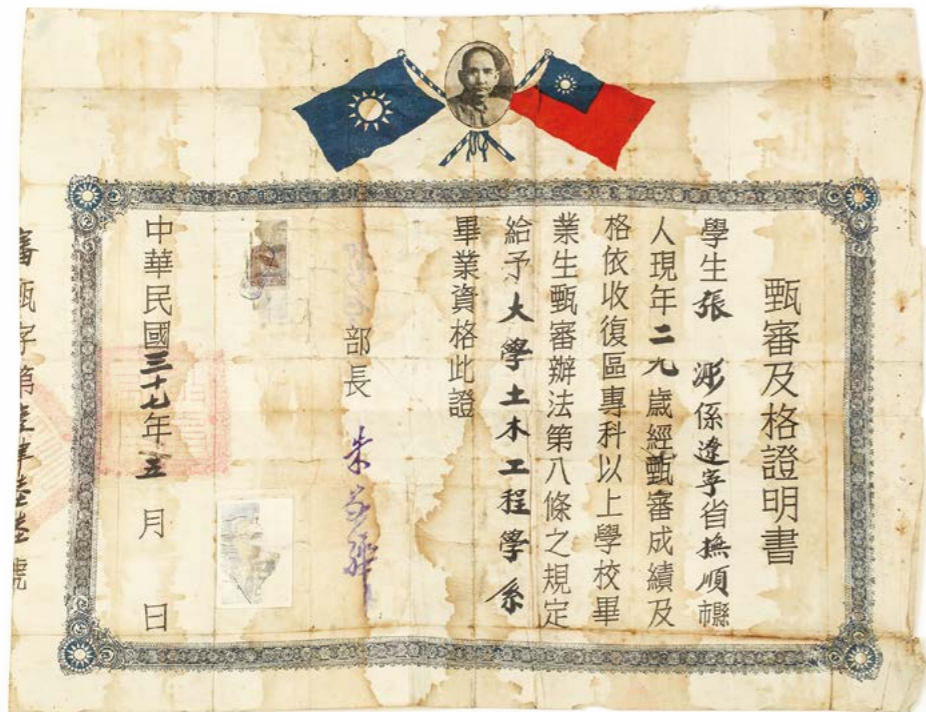 甄審及格證明書
學生張 係遼寧省撫順市縣
人現年二九歲經甄審成績及
格依收復區專科以上學校畢
業生甄審辦法第八條之規定
給予大學土木工程學系
畢業資格此證
部長 朱家驊
中華民國三十七年五月 日
審甄字第 號